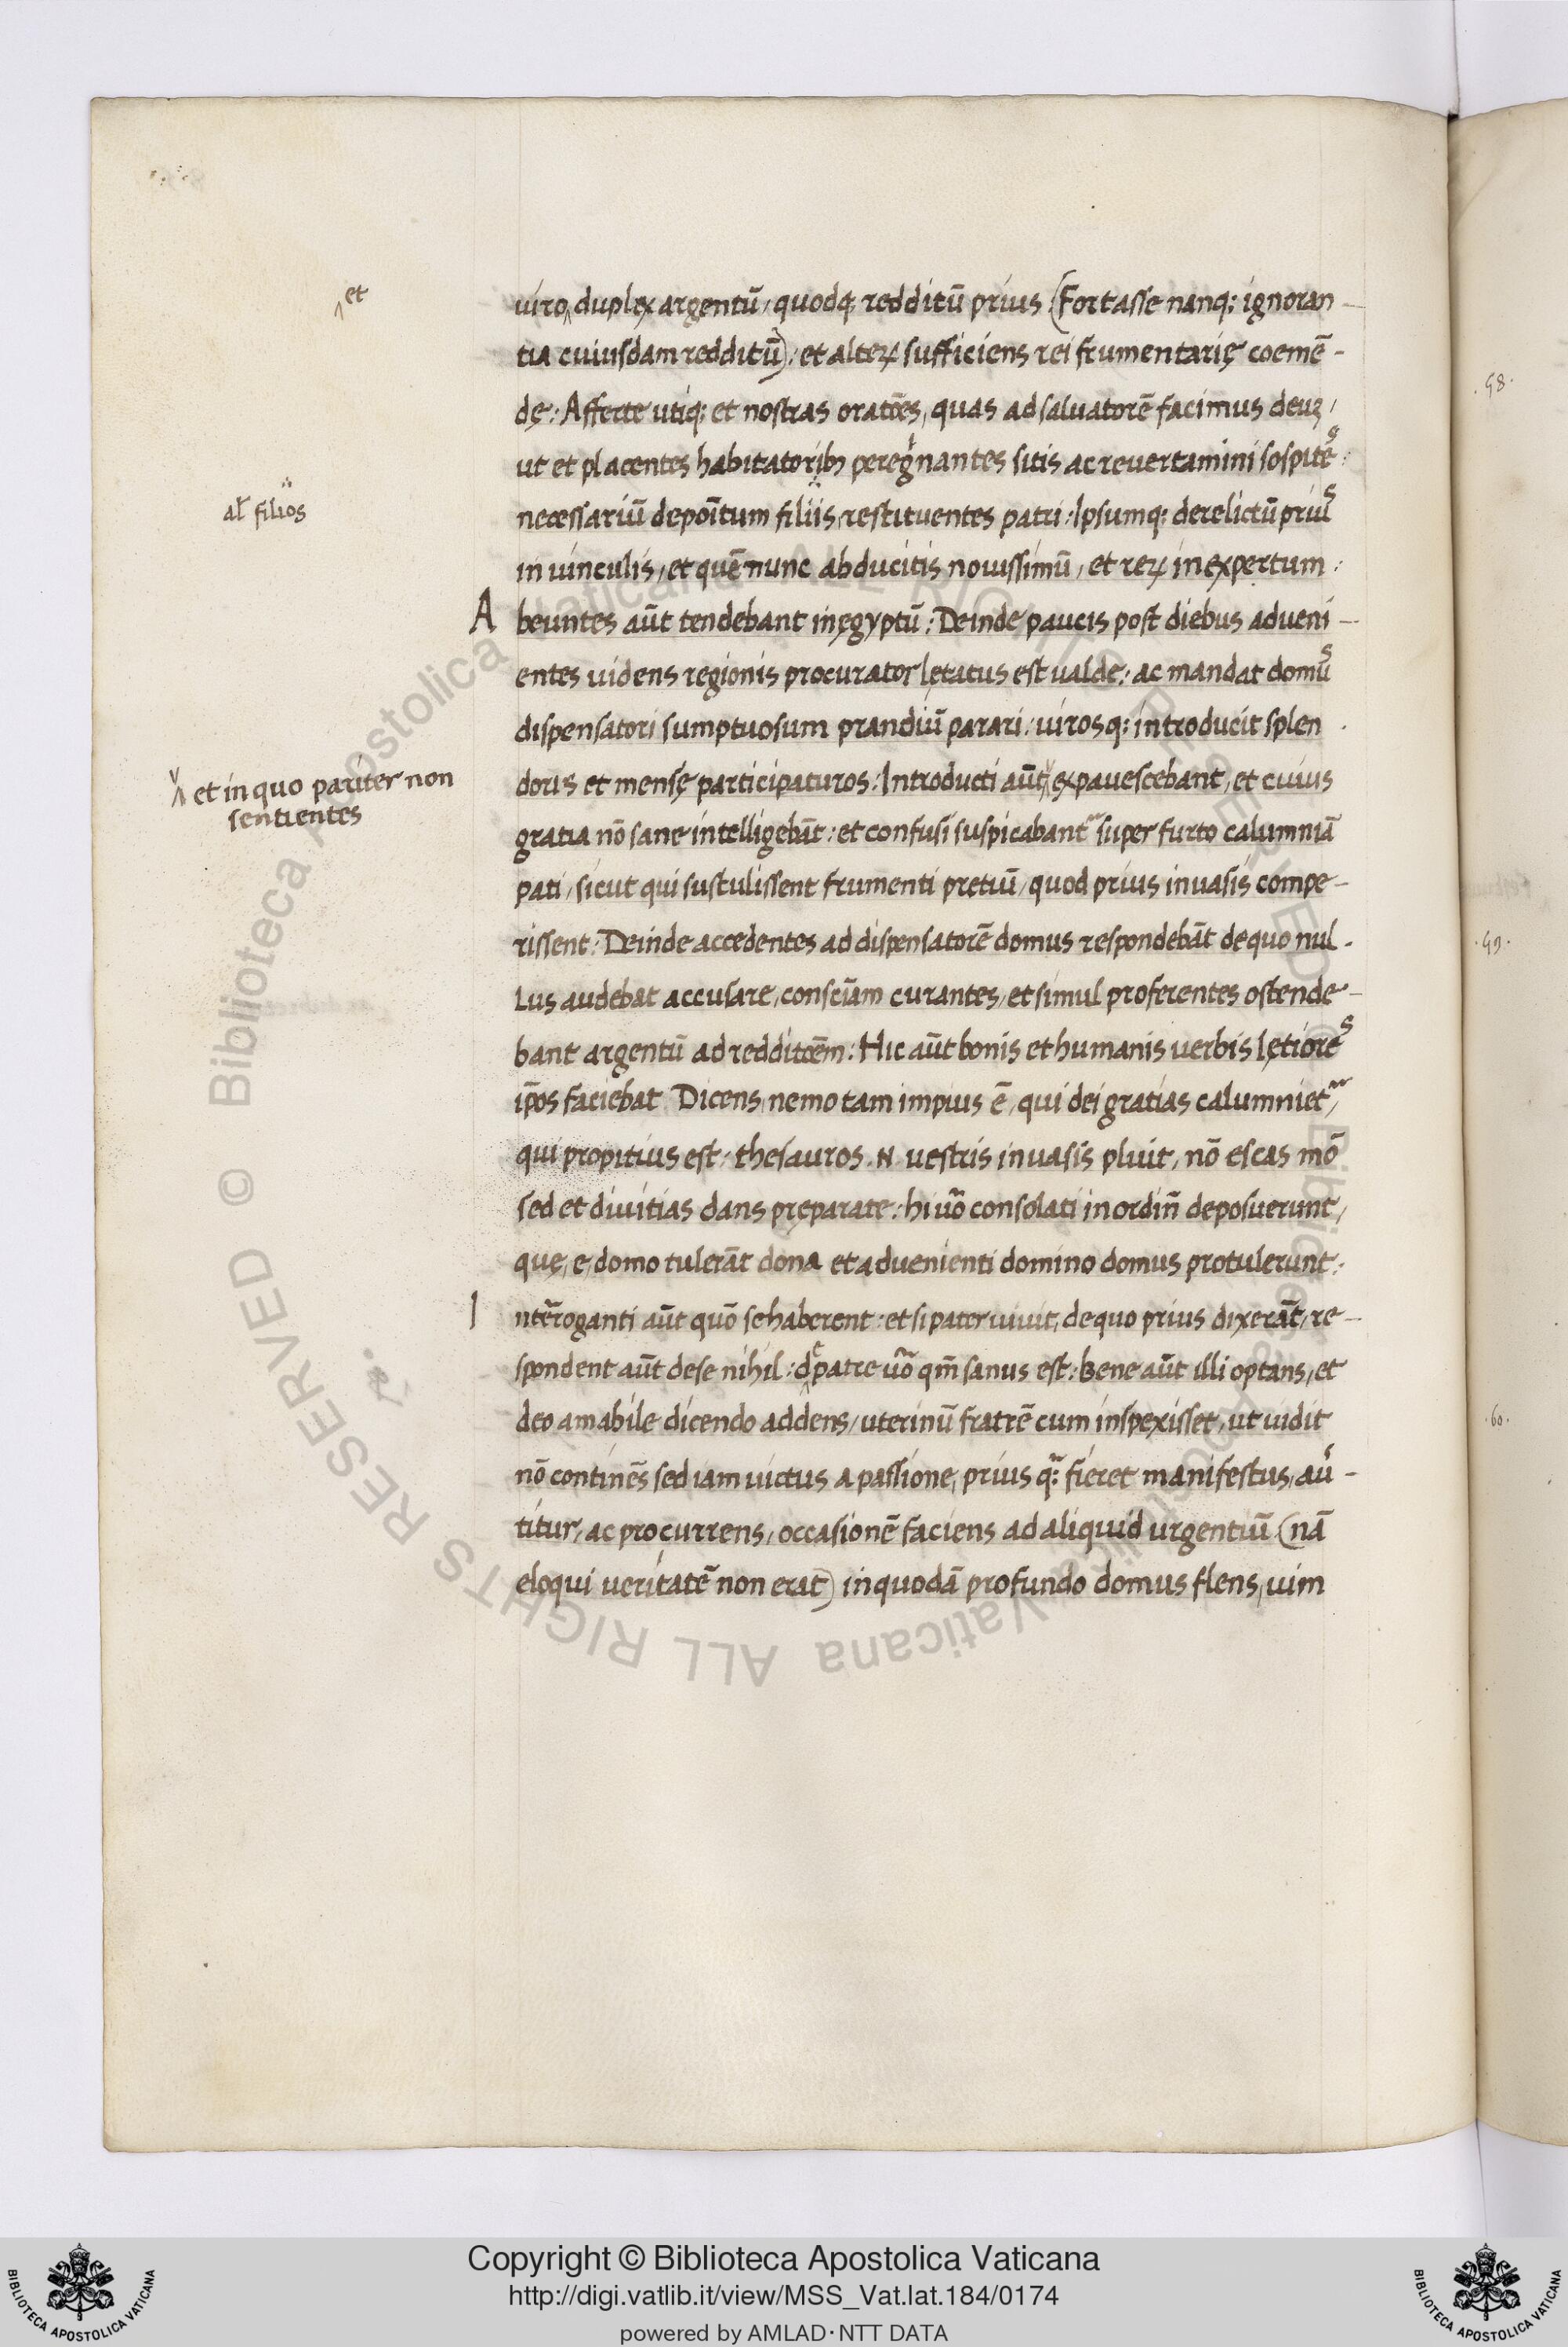 et
viro duplex argentū, quodq; redditū prius (Fortasse nanq; ignoran-
tia cuiusdam redditū): et alterꝝ sufficiens rei frumentarię coemē-
dę: Afferte utiq; et nostras oratōēs, quas ad saluatorē facimus deuꝫ,
ut et placentes habitatoribꝫ peregⁱnantes sitis ac reuertamini sospites:
al' filios
necessariū depoītum filiis, restituentes patri: Ipsumq; derelictū prius
in uinculis, et quē nunc abducitis nouissimū, et reꝝ inexpertum:
Abeuntes aūt tendebant in ęgyptū: Deinde paucis post diebus adueni-
entes uidens regionis procurator lętatus est ualde: ac mandat domus
dispensatori sumptuosum prandiū parari: uirosq; introducit splen
doris et mensę participaturos: Introducti aūt expauescebant, et cuius
et in quo pariter non
sentientes
gratia nō sane intelligebāt: et confusi suspicabant' super furto calumniā
pati, sicut qui sustulissent frumenti pretiū, quod prius in uasis compe-
rissent: Deinde accedentes ad dispensatorē domus respondebāt de quo nul-
lus audebat accusare, consciam curantes, et simul proferentes ostende-
bant argentū ad redditōēm: Hic aūt bonis et humanis uerbis lętiores
ip̄os faciebat Dicens, nemo tam impius ē, qui dei gratias calumniet',
qui propitius est: thesauros .N. uestris in uasis pluit, nō escas mō
sed et diuitias dans pręparate: hi uo consolati in ordiñ deposuerunt,
quę, e, domo tulerāt dona et aduenienti domino domus protulerunt:
Interroganti aūt quō se haberent: et si pater uiuit, de quo prius dixerāt, re-
spondent aūt de se nihil: de patre uo qm̄ sanus est: Bene aūt illi optans, et
deo amabile dicendo addens, uterinū fratrē cum inspexisset, ut uidit
nō continēs sed iam uictus a passione, prius q; fieret manifestus, auʳ-
titur, ac procurrens, occasionē faciens ad aliquid urgentiū (nā
eloqui ueritatē non erat) in quodā profundo domus flens, uim
.58.
.59.
.60.
© Biblioteca Apostolica Vaticana ALL RIGHTS RESERVED
Copyright © Biblioteca Apostolica Vaticana
http://digi.vatlib.it/view/MSS_Vat.lat.184/0174
powered by AMLAD·NTT DATA
BIBLIOTECA APOSTOLICA VATICANA
BIBLIOTECA APOSTOLICA VATICANA